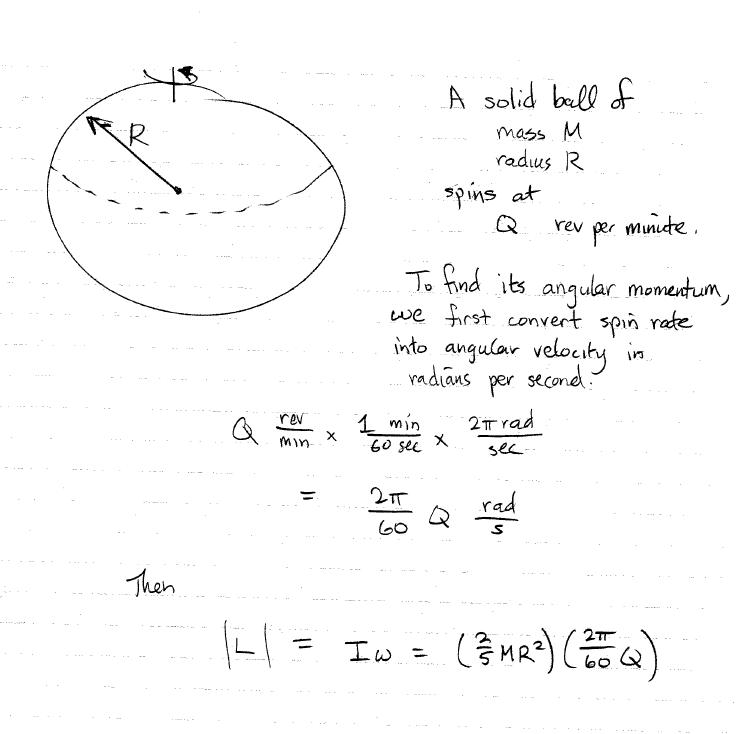 R
A solid ball of
mass M
radius R
spins at
Q rev per minute.
To find its angular momentum,
we first convert spin rate
into angular velocity in
radians per second.
Q rev/min × 1 min/60 sec × 2π rad/sec
= 2π/60 Q rad/s
Then
|L| = Iω = (2/5 MR²)(2π/60 Q)